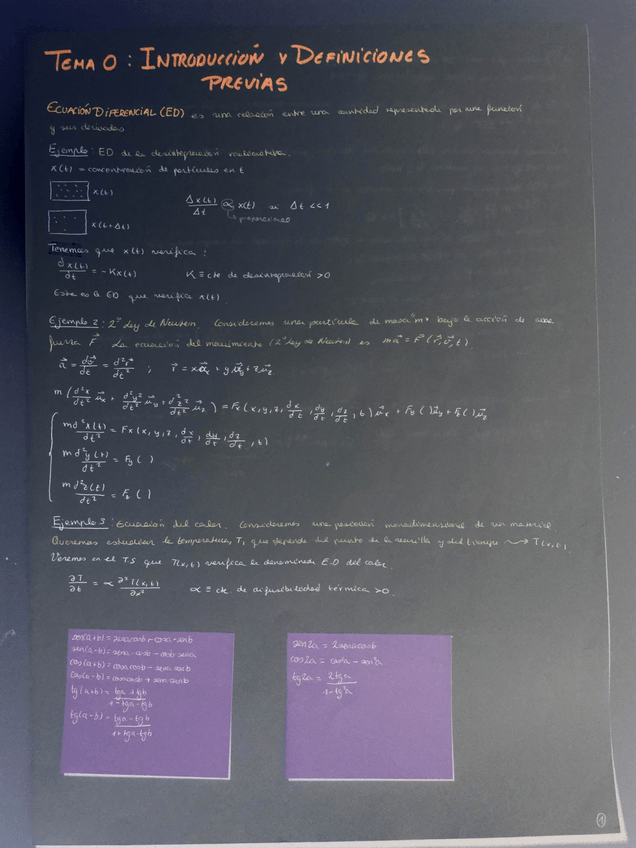 TEMA 0: INTRODUCCIÓN Y DEFINICIONES
PREVIAS
ECUACIÓN DIFERENCIAL (ED) es una relación entre una cantidad representada por una función
y sus derivadas
Ejemplo: ED de la desintegración radioactiva.
x(t) = concentración de partículas en t
x(t)
Δx(t)/Δt ∝ x(t) si Δt << 1
↳ proporcional
x(t+Δt)
Tenemos que x(t) verifica:
dx(t)/dt = -Kx(t) K ≡ cte de desintegración >0
Esta es la ED que verifica x(t).
Ejemplo 2: 2ª Ley de Newton. Consideremos una partícula de masa "m" bajo la acción de una
fuerza F⃗. La ecuación del movimiento (2ª Ley de Newton) es ma⃗ = F⃗(r⃗, v⃗, t).
a⃗ = dv⃗/dt = d²r⃗/dt² ; r⃗ = xu⃗x + yu⃗y + zu⃗z
m(d²x/dt² u⃗x + d²y/dt² u⃗y + d²z/dt² u⃗z) = Fx(x, y, z, dx/dt, dy/dt, dz/dt, t)u⃗x + Fy( )u⃗y + Fz( )u⃗z
md²x(t)/dt² = Fx(x, y, z, dx/dt, dy/dt, dz/dt, t)
md²y(t)/dt² = Fy( )
md²z(t)/dt² = Fz( )
Ejemplo 3: Ecuación del calor. Consideremos una monodimensional de un material
Queremos estudiar la temperatura, T, que depende del punto de la varilla y del tiempo → T(x,t).
Veremos en el T.5 que T(x,t) verifica la denominada E.D del calor.
∂T/∂t = ∝ ∂²T(x,t)/∂x² ∝ ≡ cte. de difusibilidad térmica >0.
sen(a+b) = sena·cosb + cosa·senb
sen(a-b) = sena·cosb - cosb·sena
cos(a+b) = cosa·cosb - sena·senb
cos(a-b) = cosa·cosb + sena·senb
tg(a+b) = tga + tgb / 1 - tga·tgb
tg(a-b) = tga - tgb / 1 + tga·tgb
sen2a = 2sena·cosb
cos2a = cos²a - sen²a
tg2a = 2tga / 1 - tg²a
1